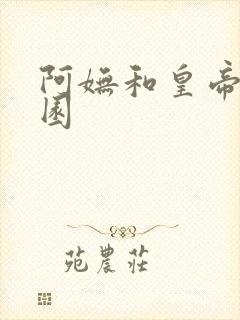 阿嫵和皇帝
園
苑農莊